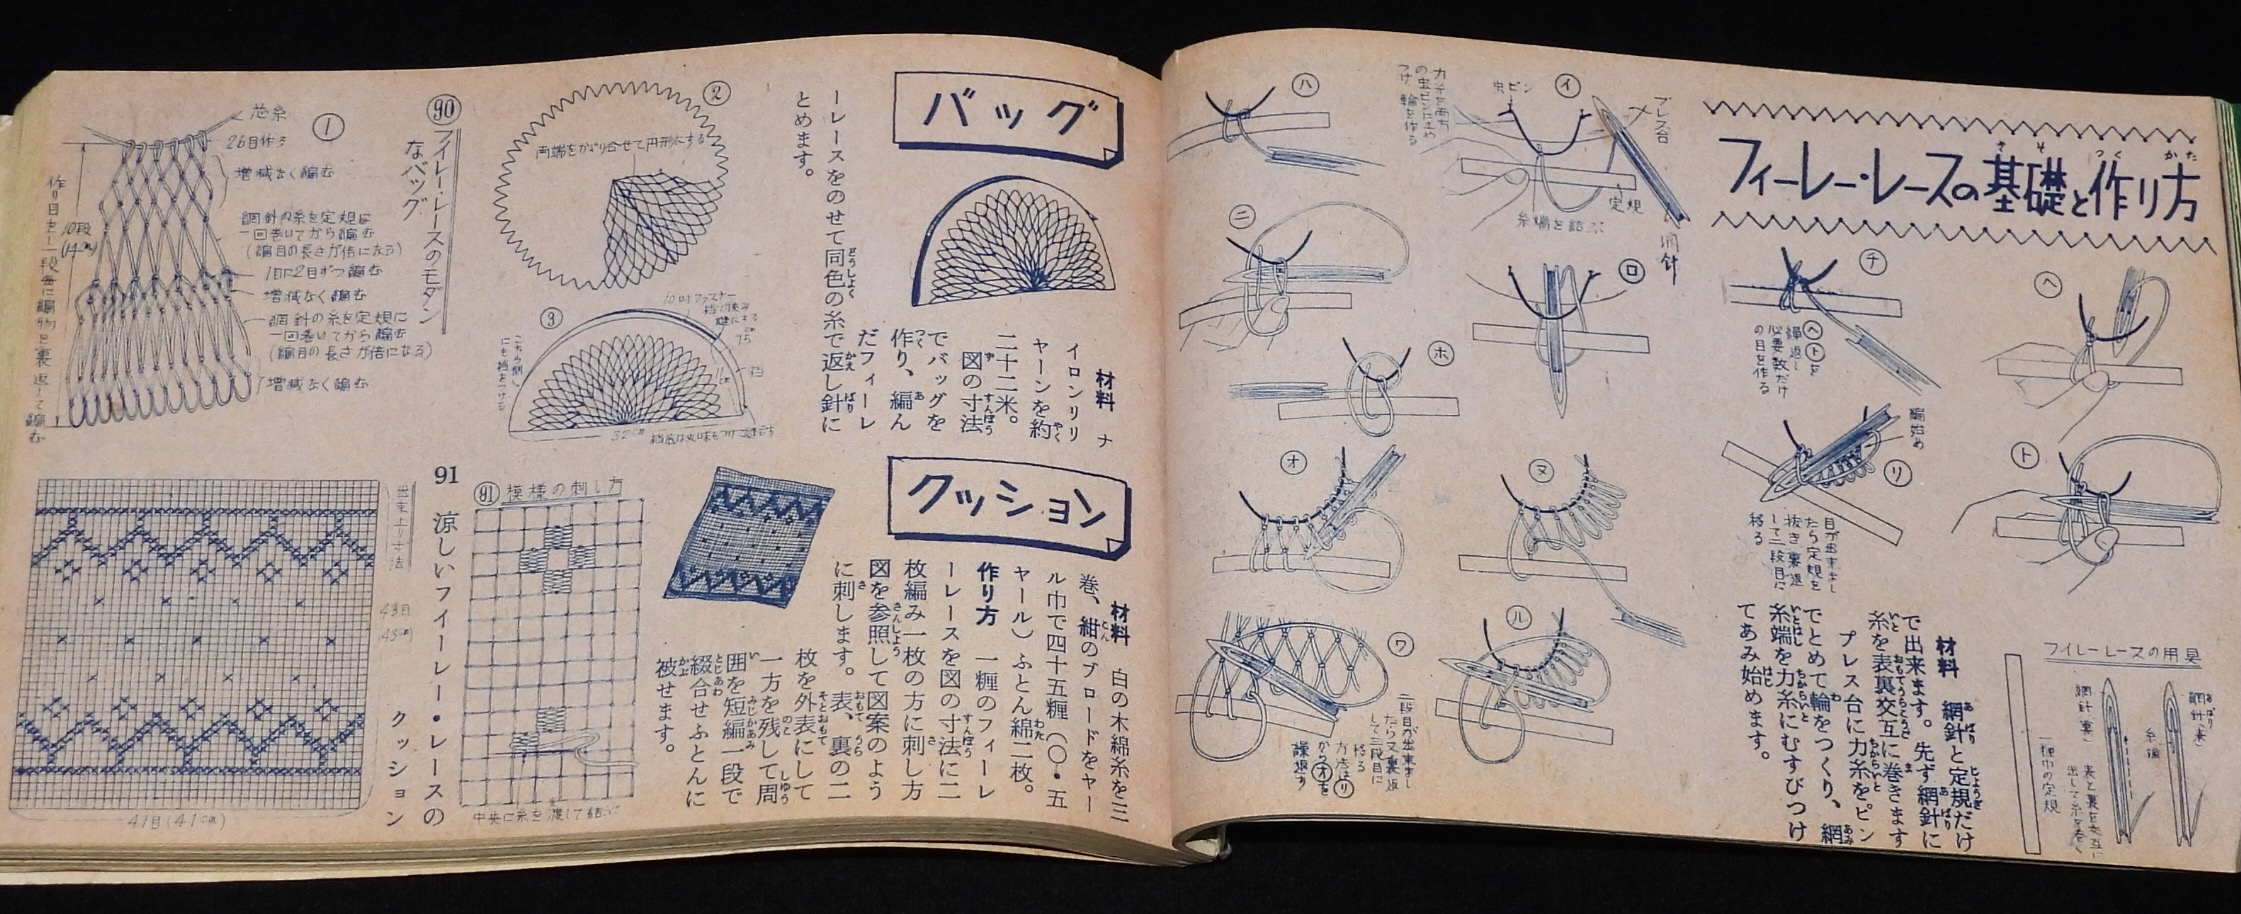 フィーレー・レースの基礎と作り方
材料　網針と定規だけ
で出来ます。先ず網針に
糸を表裏交互に巻きます
プレス台に力糸をピン
でとめて輪をつくり、網
糸端を力糸にむすびつけ
てあみ始めます。
フイレーレースの用具
網針(表)
糸端
網針(裏)
表と裏を交互に
出して糸を巻く
一糎巾の定規
イ
プレス台
虫ピン
定規
糸端を結ぶ
網針
力糸を両方
の虫ピンに止め
つけ輪を作る
ロ
ハ
ニ
ホ
ヘ
ト
チ
ヘトを
繰返し
必要数だけ
の目を作る
リ
編始め
目が出来まし
たら定規を
抜き裏返
して二段目に
移る
ヌ
ル
オ
ワ
二段目が出来まし
たら又裏返
して三段目に
移る
方法はリ
からオを
繰返す
バッグ
材料　ナ
イロンリリ
ヤーンを約
二十二米。
図の寸法
でバッグを
作り、編ん
だフィーレ
ーレースをのせて同色の糸で返し針に
とめます。
90
フイレー・レースのモダン
なバッグ
①
芯糸
26目作る
増減なく編む
網針の糸を定規に
一回巻いてから編む
(編目の長さが倍になる)
1目に2目ずつ編む
増減なく編む
網針の糸を定規に
一回巻いてから編む
(編目の長さが倍になる)
増減なく編む
10段
(14cm)
作り目をし一段毎に編物を裏返して編む
②
両端をかがり合せて円形にする
③
32cm
クッション
材料　白の木綿糸を三
巻、紺のブロードをヤー
ル巾で四十五糎(〇・五
ヤール)ふとん綿二枚。
作り方　一糎のフィーレ
ーレースを図の寸法に二
枚編み一枚の方に刺し方
図を参照して図案のよう
に刺します。表、裏の二
枚を外表にして
一方を残して周
囲を短編一段で
綴合せふとんに
被せます。
91　涼しいフイーレー・レースの
クッション
91 模様の刺し方
中央に糸を渡して結ぶ
出来上り寸法
43目
43cm
41目(41cm)